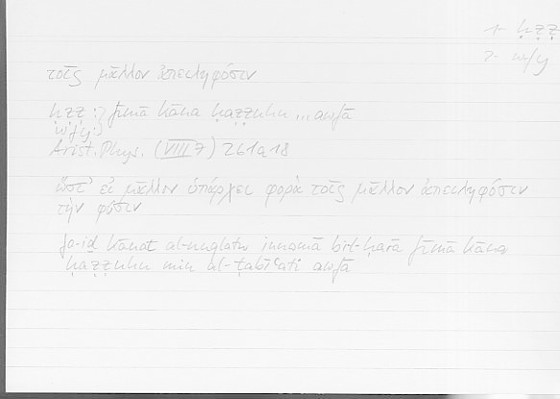 1- ḥẓẓ
2- wfy
τοῖς μᾶλλον ἀπειληφόσιν
ḥẓẓ : } fīmā kāna ḥaẓẓuhu ... awfā
wfy : }
Arist. Phys. (VIII 7) 261a18
ὥστ' εἰ μᾶλλον ὑπάρχει φορὰ τοῖς μᾶλλον ἀπειληφόσιν
τὴν φύσιν
fa-iḏ kānat al-nuqlatu innamā bil-ḥarā fīmā kāna
ḥaẓẓuhu min al-ṭabīʿati awfā